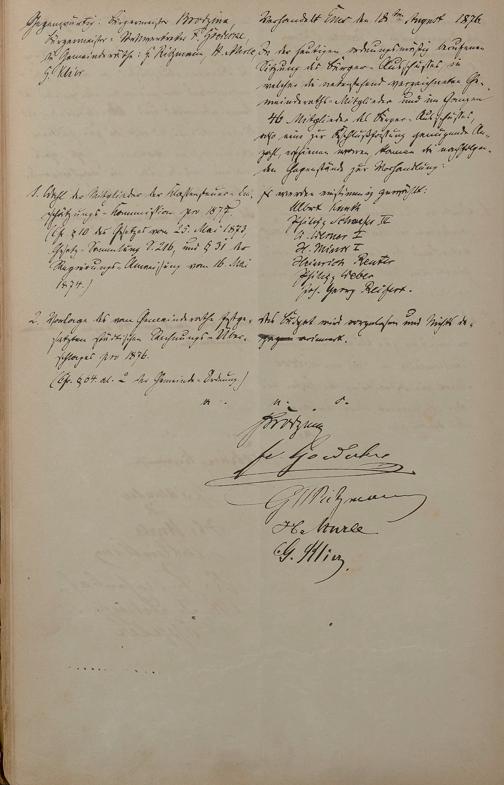 Gegenwärtig: Bürgermeister Brodzina
Bürgermeister-
die Gemeinderäthe: G. Ritzmann H. Merle
G. Klier
Verhandelt Ems den 18ten August 1876.
In der heutigen ordnungsmäßig berufenen
Sitzung des Bürger-Ausschusses in
welcher die nebenstehend verzeichneten Ge-
meinderaths-Mitglieder und im Ganzen
46 Mitglieder des Bürger-Ausschusses,
also eine zur Beschlußfassung genügende An-
zahl, erschienen waren kamen die nachfolgen-
den Gegenstände zur Verhandlung:
1. Wahl der Mitglieder der Klassensteuer-Ein-
schätzungs-Kommission pro 1877.
(Cfr. § 10 des Gesetzes vom 25. Mai 1873,
Gesetz-Sammlung S. 216, und § 31 der
Regierungs-Anweisung vom 16. Mai
1874.)
Es werden einstimmig gewählt:
Albert
Philipp Schaefer IV
Werner I
H. I
Heinrich Reuter
Philipp Weber
Joh. Georg Reifert.
2. Vorlage des vom Gemeinderathe festge-
setzten städtischen Rechnungs-Ueber-
schlages pro 1876.
(Cfr. al. 2 der Gemeinde-Ordnung.)
das Budget wird vorgelesen und Nichts da-
gegen erinnert.
u. s.
Brodzina
G Ritzmann
H. Merle
G. Klier